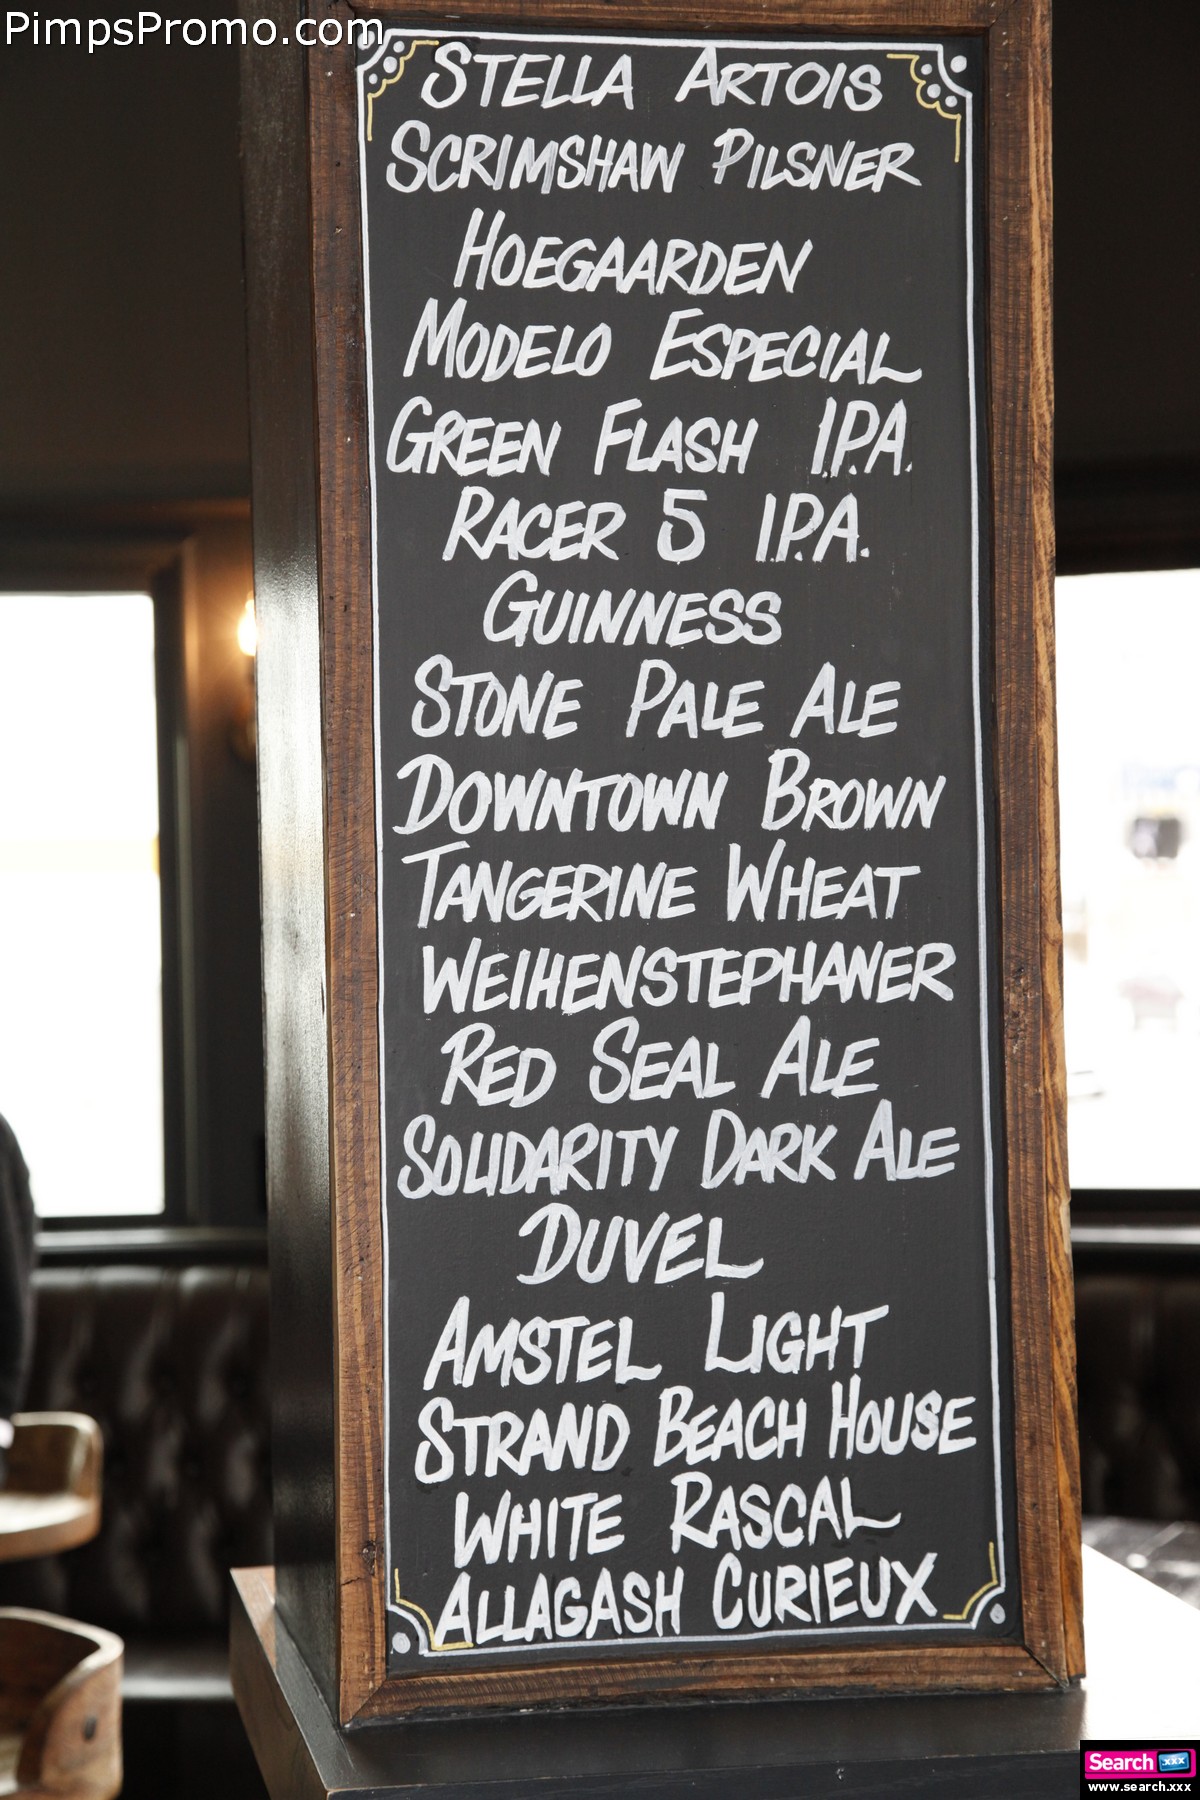 PimpsPromo.com
STELLA ARTOIS
SCRIMSHAW PILSNER
HOEGAARDEN
MODELO ESPECIAL
GREEN FLASH I.P.A.
RACER 5 I.P.A.
GUINNESS
STONE PALE ALE
DOWNTOWN BROWN
TANGERINE WHEAT
WEIHENSTEPHANER
RED SEAL ALE
SOLIDARITY DARK ALE
DUVEL
AMSTEL LIGHT
STRAND BEACH HOUSE
WHITE RASCAL
ALLAGASH CURIEUX
Search .xxx
www.search.xxx